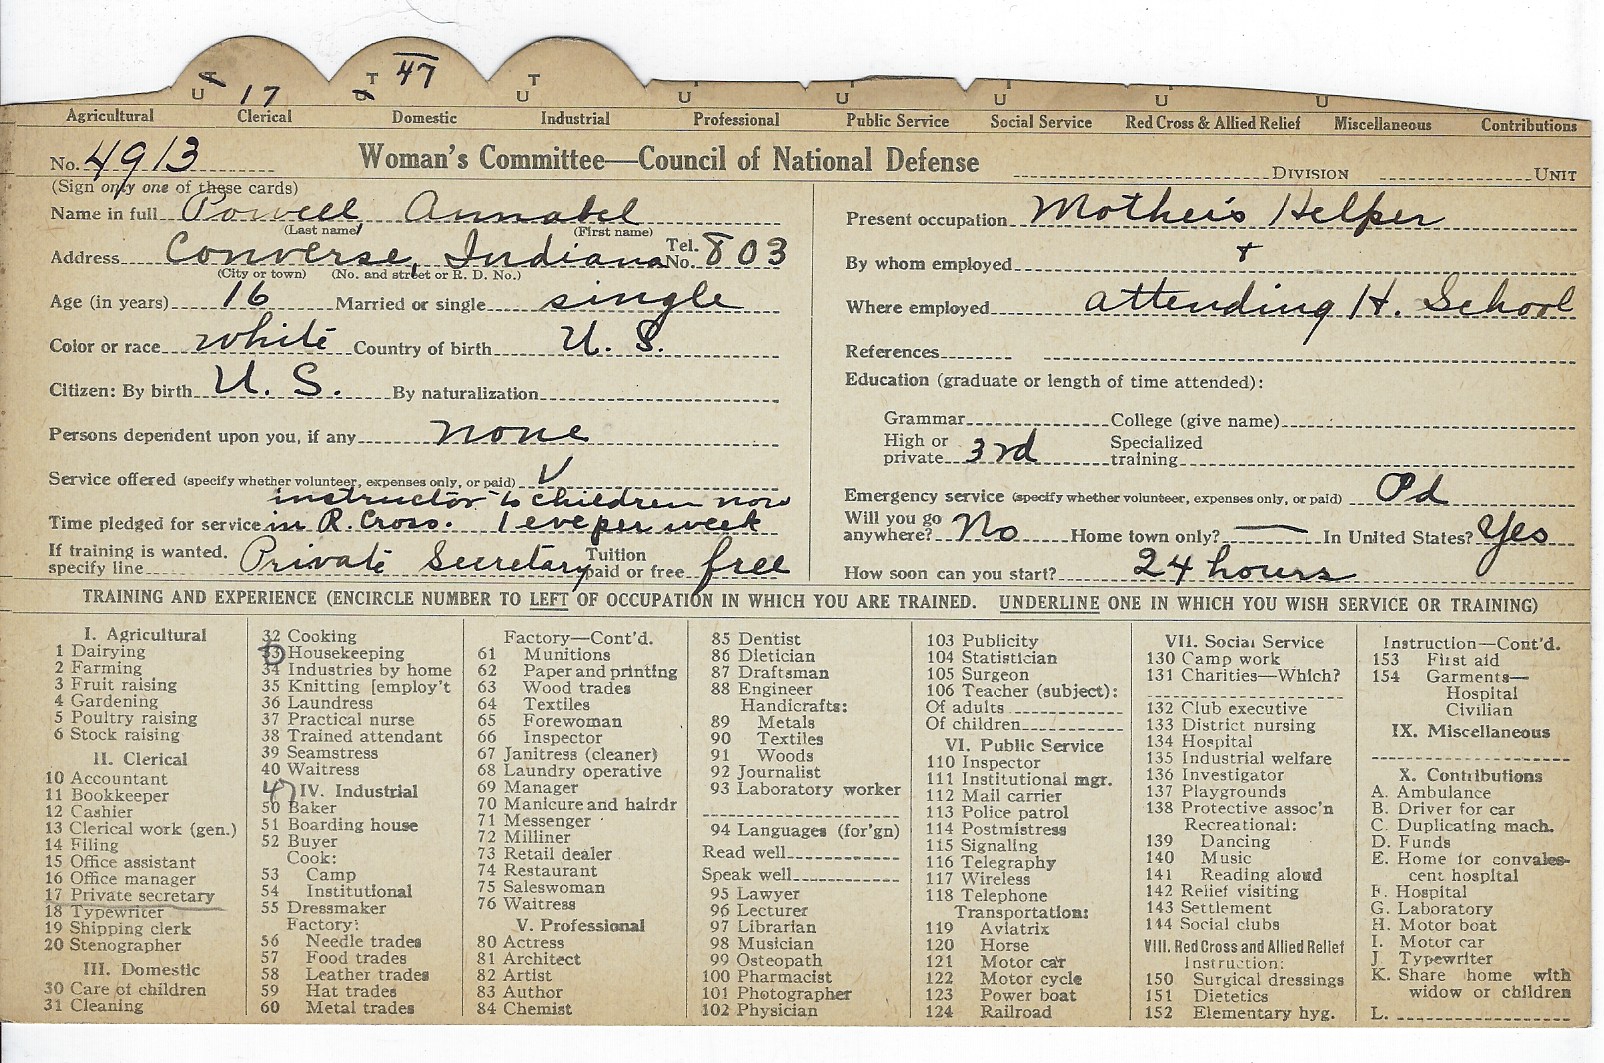 47
U T 17 T U T U U U U U
Agricultural Clerical Domestic Industrial Professional Public Service Social Service Red Cross & Allied Relief Miscellaneous Contributions
No. 4913 Woman's Committee—Council of National Defense DIVISION UNIT
(Sign only one of these cards)
Name in full Powell Annabel
(Last name) (First name)
Address Converse, Indiana Tel. No. 803
(City or town) (No. and street or R. D. No.)
Age (in years) 16 Married or single single
Color or race white Country of birth U. S.
Citizen: By birth U. S. By naturalization
Persons dependent upon you, if any none
Service offered (specify whether volunteer, expenses only, or paid) V
instructor to children now
Time pledged for service in R. Cross. 1 eve per week
If training is wanted, specify line Private Secretary Tuition paid or free free
Present occupation Mother's Helper
By whom employed +
Where employed attending H. School
References
Education (graduate or length of time attended):
Grammar College (give name)
High or private 3rd Specialized training
Emergency service (specify whether volunteer, expenses only, or paid) Pd
Will you go anywhere? No Home town only? — In United States? Yes
How soon can you start? 24 hours
TRAINING AND EXPERIENCE (ENCIRCLE NUMBER TO LEFT OF OCCUPATION IN WHICH YOU ARE TRAINED. UNDERLINE ONE IN WHICH YOU WISH SERVICE OR TRAINING)
I. Agricultural
1 Dairying
2 Farming
3 Fruit raising
4 Gardening
5 Poultry raising
6 Stock raising
II. Clerical
10 Accountant
11 Bookkeeper
12 Cashier
13 Clerical work (gen.)
14 Filing
15 Office assistant
16 Office manager
17 Private secretary
18 Typewriter
19 Shipping clerk
20 Stenographer
III. Domestic
30 Care of children
31 Cleaning
32 Cooking
33 Housekeeping
34 Industries by home
35 Knitting [employ't
36 Laundress
37 Practical nurse
38 Trained attendant
39 Seamstress
40 Waitress
47 IV. Industrial
50 Baker
51 Boarding house
52 Buyer
Cook:
53 Camp
54 Institutional
55 Dressmaker
Factory:
56 Needle trades
57 Food trades
58 Leather trades
59 Hat trades
60 Metal trades
Factory—Cont'd.
61 Munitions
62 Paper and printing
63 Wood trades
64 Textiles
65 Forewoman
66 Inspector
67 Janitress (cleaner)
68 Laundry operative
69 Manager
70 Manicure and hairdr
71 Messenger
72 Milliner
73 Retail dealer
74 Restaurant
75 Saleswoman
76 Waitress
V. Professional
80 Actress
81 Architect
82 Artist
83 Author
84 Chemist
85 Dentist
86 Dietician
87 Draftsman
88 Engineer
Handicrafts:
89 Metals
90 Textiles
91 Woods
92 Journalist
93 Laboratory worker
94 Languages (for'gn)
Read well
Speak well
95 Lawyer
96 Lecturer
97 Librarian
98 Musician
99 Osteopath
100 Pharmacist
101 Photographer
102 Physician
103 Publicity
104 Statistician
105 Surgeon
106 Teacher (subject):
Of adults
Of children
VI. Public Service
110 Inspector
111 Institutional mgr.
112 Mail carrier
113 Police patrol
114 Postmistress
115 Signaling
116 Telegraphy
117 Wireless
118 Telephone
Transportation:
119 Aviatrix
120 Horse
121 Motor car
122 Motor cycle
123 Power boat
124 Railroad
VII. Social Service
130 Camp work
131 Charities—Which?
132 Club executive
133 District nursing
134 Hospital
135 Industrial welfare
136 Investigator
137 Playgrounds
138 Protective assoc'n
Recreational:
139 Dancing
140 Music
141 Reading aloud
142 Relief visiting
143 Settlement
144 Social clubs
VIII. Red Cross and Allied Relief
Instruction:
150 Surgical dressings
151 Dietetics
152 Elementary hyg.
Instruction—Cont'd.
153 First aid
154 Garments—
Hospital
Civilian
IX. Miscellaneous
X. Contributions
A. Ambulance
B. Driver for car
C. Duplicating mach.
D. Funds
E. Home for convales-
cent hospital
F. Hospital
G. Laboratory
H. Motor boat
I. Motor car
J. Typewriter
K. Share home with
widow or children
L.